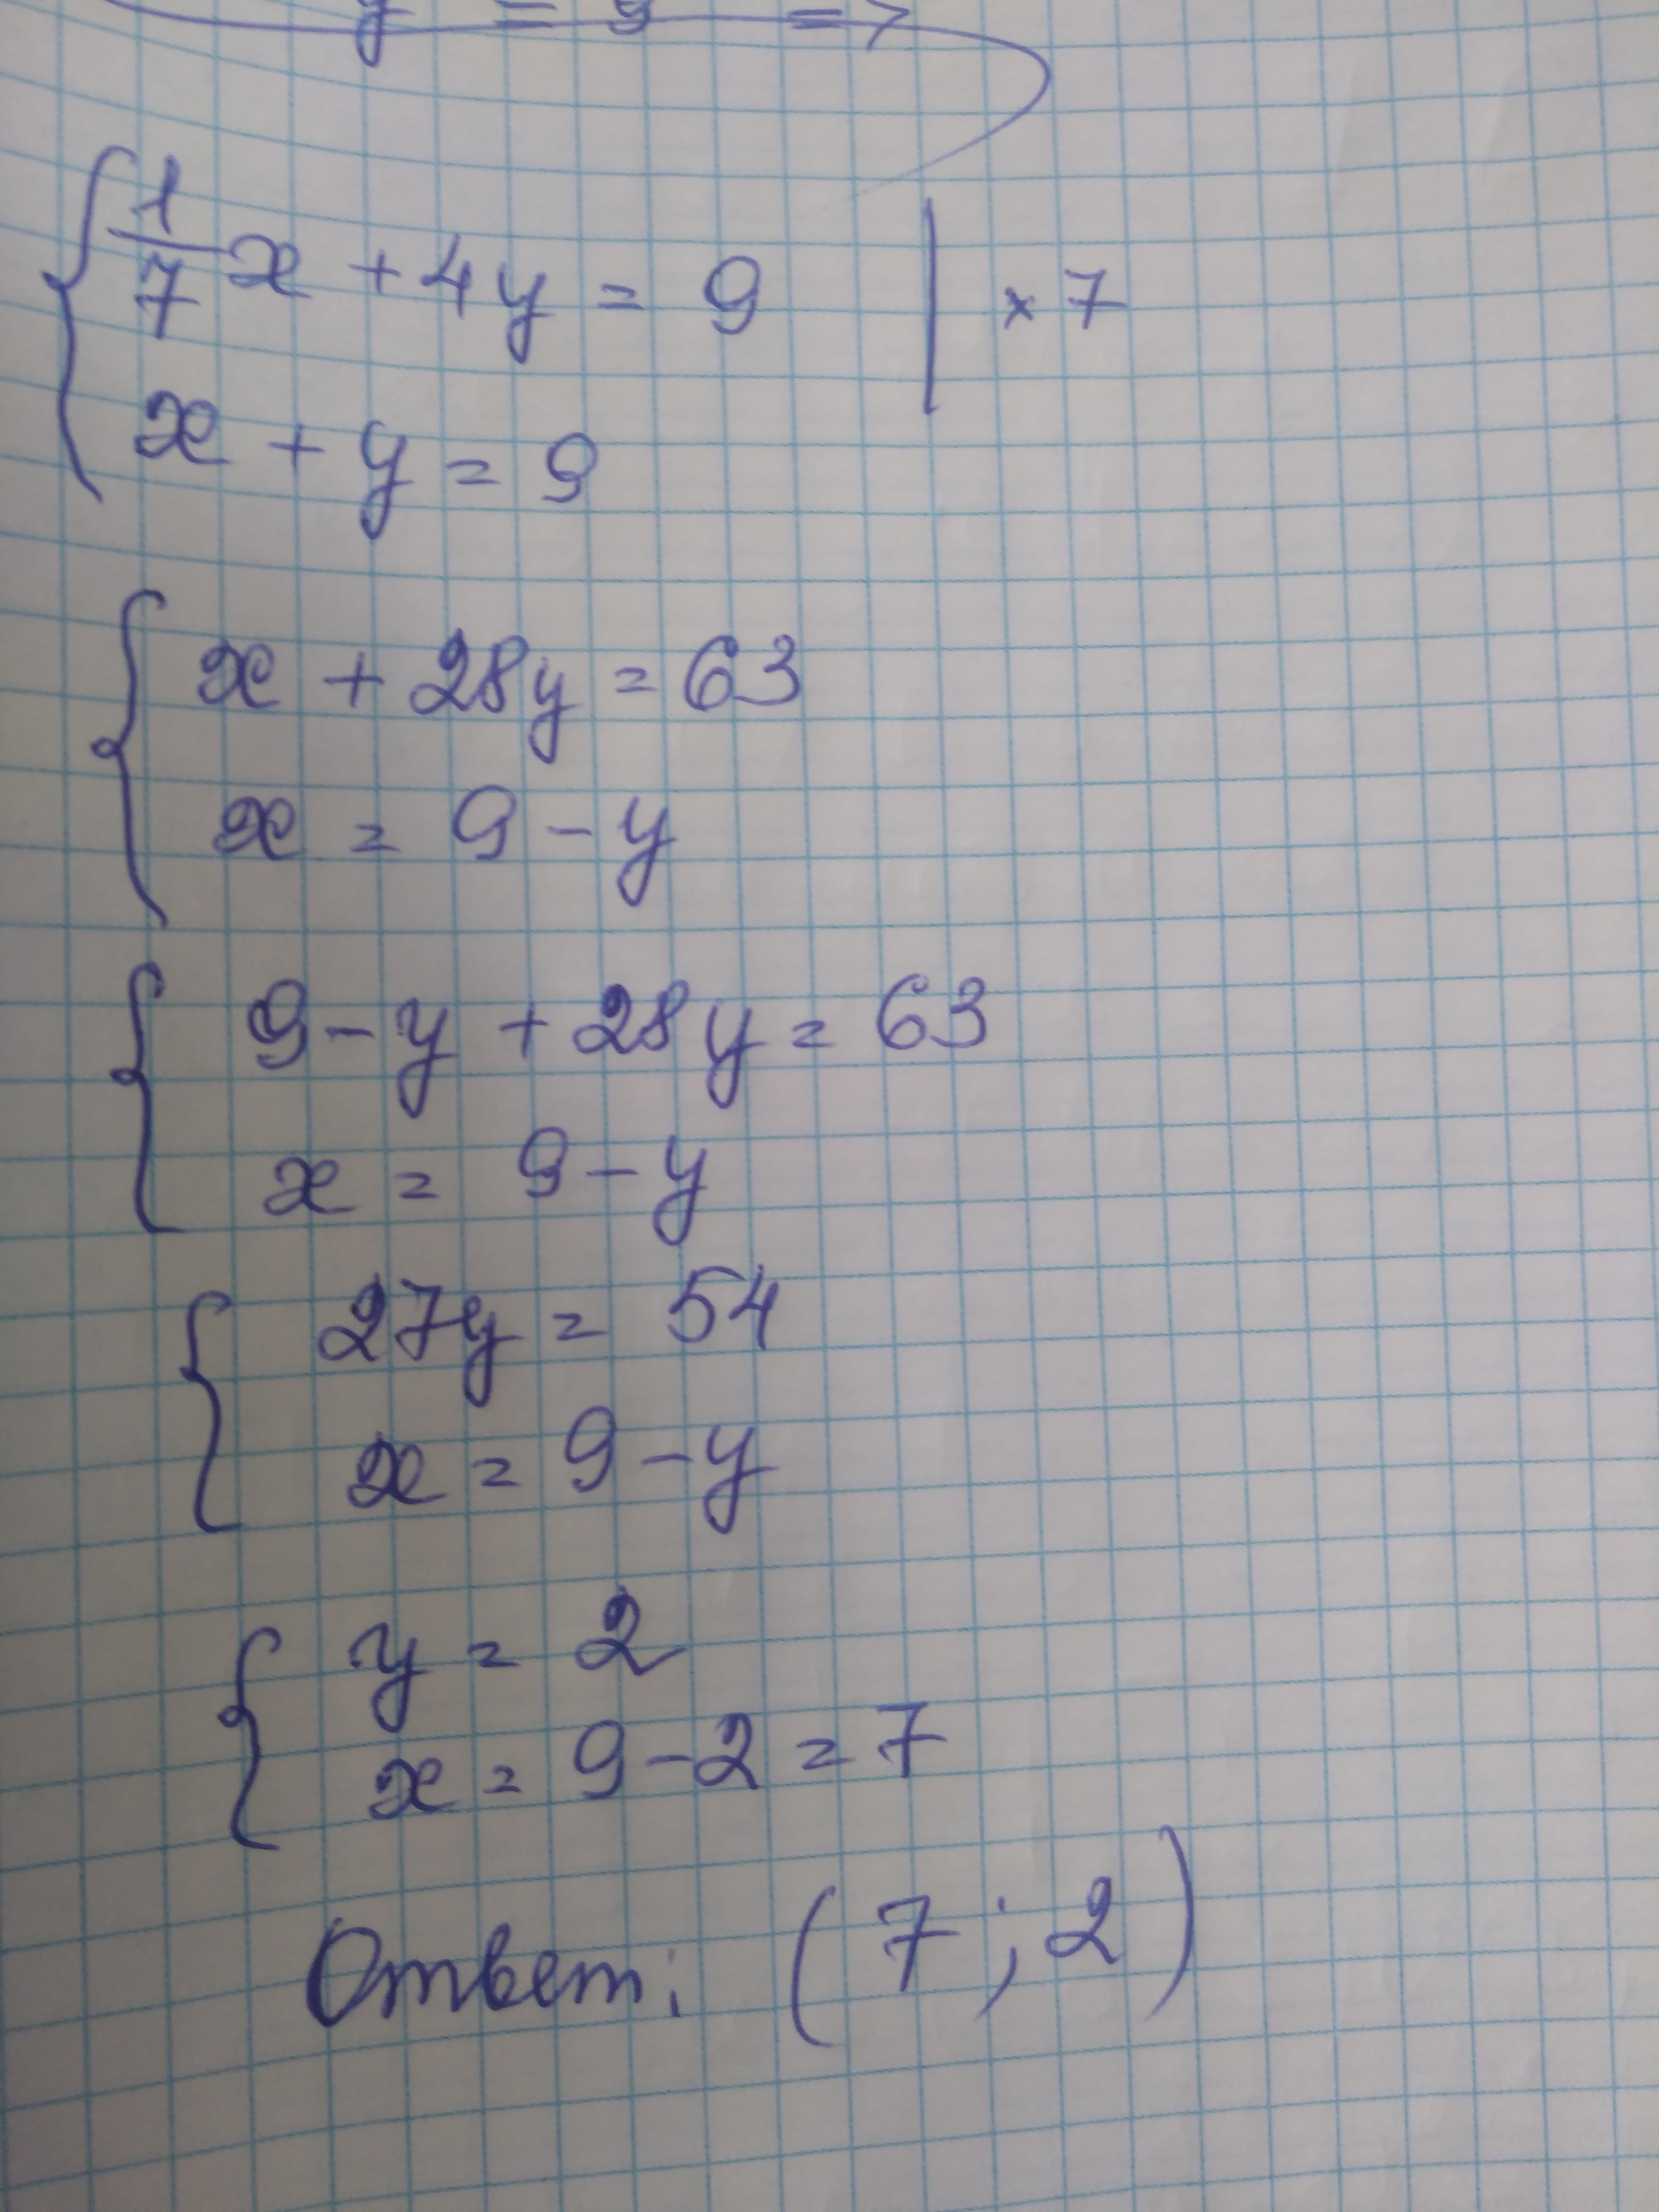 y = 9 = 7
1/7 x + 4y = 9 | × 7
x + y = 9
x + 28y = 63
x = 9 - y
9 - y + 28y = 63
x = 9 - y
27y = 54
x = 9 - y
y = 2
x = 9 - 2 = 7
Ответ: (7; 2)